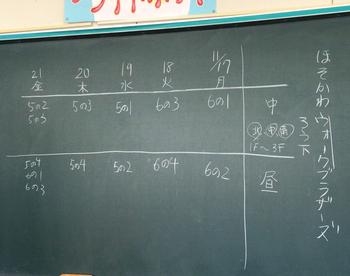 ほそかわ ウォークブラザーズ
ろうつ下
11/17 18 19 20 21
月 火 水 木 金
中 6の1 6の3 5の1 5の3 5の2
5の3
1F〜3F
昼 6の2 6の4 5の2 5の4 5の4
6の1
6の3